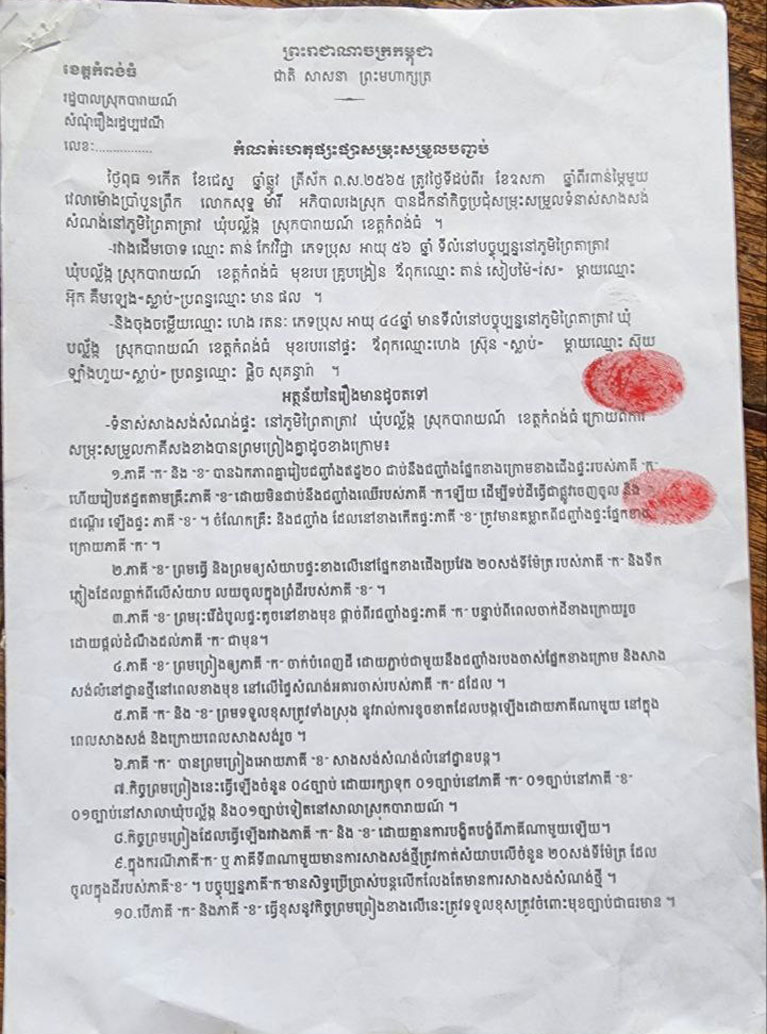 ព្រះរាជាណាចក្រកម្ពុជា
ខេត្តកំពង់ធំ
ជាតិ សាសនា ព្រះមហាក្សត្រ
រដ្ឋបាលស្រុកបារាយណ៍
សំណុំរឿងរដ្ឋប្បវេណី
លេខ:................
កំណត់ហេតុផ្សះផ្សាសម្រុះសម្រួលបញ្ចប់
ថ្ងៃពុធ ១កើត ខែជេស្ឋ ឆ្នាំឆ្លូវ ត្រីស័ក ព.ស.២៥៦៥ ត្រូវថ្ងៃទីដប់ពីរ ខែឧសភា ឆ្នាំពីរពាន់ម្ភៃមួយ
វេលាម៉ោងប្រាំបូនព្រឹក លោកសុទ្ធ ម៉ារី អភិបាលរងស្រុក បានដឹកនាំកិច្ចប្រជុំសម្រុះសម្រួលទំនាស់សាងសង់
សំណង់នៅភូមិព្រៃតាត្រាវ ឃុំបល្ល័ង្ក ស្រុកបារាយណ៍ ខេត្តកំពង់ធំ ។
-រវាងដើមចោទ ឈ្មោះ តាន់ កែវវិជ្ជា ភេទប្រុស អាយុ ៥៦ ឆ្នាំ ទីលំនៅបច្ចុប្បន្ននៅភូមិព្រៃតាត្រាវ
ឃុំបល្ល័ង្ក ស្រុកបារាយណ៍ ខេត្តកំពង់ធំ មុខរបរ គ្រូបង្រៀន ឪពុកឈ្មោះ តាន់ សៀបម៉ៃ-រស- ម្តាយឈ្មោះ
អ៊ុក គឹមឡេង-ស្លាប់-ប្រពន្ធឈ្មោះ មាន ផល ។
-និងចុងចម្លើយឈ្មោះ ហេង រតនៈ ភេទប្រុស អាយុ ៤៤ឆ្នាំ មានទីលំនៅបច្ចុប្បន្ននៅភូមិព្រៃតាត្រាវ ឃុំ
បល្ល័ង្ក ស្រុកបារាយណ៍ ខេត្តកំពង់ធំ មុខរបរនៅផ្ទះ ឪពុកឈ្មោះហេង ស្រ៊ុន -ស្លាប់- ម្តាយឈ្មោះ ស៊ុយ
ឡាំងហួយ-ស្លាប់- ប្រពន្ធឈ្មោះ ផ្លិច សុគន្ធារ៉ា ។
អត្ថន័យនៃរឿងមានដូចតទៅ
-ទំនាស់សាងសង់សំណង់ផ្ទះ នៅភូមិព្រៃតាត្រាវ ឃុំបល្ល័ង្ក ស្រុកបារាយណ៍ ខេត្តកំពង់ធំ ក្រោយពីការ
សម្រុះសម្រួលភាគីសងខាងបានព្រមព្រៀងគ្នាដូចខាងក្រោម៖
១.ភាគី "ក" និង "ខ" បានឯកភាពគ្នារៀបជញ្ជាំងឥដ្ឋ២០ ជាប់នឹងជញ្ជាំងផ្នែកខាងក្រោមខាងជើងផ្ទះរបស់ភាគី "ក"
ហើយរៀបឥដ្ឋតាមគ្រឹះភាគី "ខ" ដោយមិនជាប់នឹងជញ្ជាំងឈើរបស់ភាគី "ក"ឡើយ ដើម្បីទប់ដីធ្វើជាផ្លូវចេញចូល និង
ជណ្តើរ ឡើងផ្ទះ ភាគី "ខ" ។ ចំណែកគ្រឹះ និងជញ្ជាំង ដែលនៅខាងកើតផ្ទះភាគី "ខ" ត្រូវមានគម្លាតពីជញ្ជាំងផ្ទះផ្នែកខាង
ក្រោយភាគី "ក" ។
២.ភាគី "ខ" ព្រមធ្វើ និងព្រមឲ្យសំយាបផ្ទះខាងលើនៅផ្នែកខាងជើងប្រវែង ២០សង់ទីម៉ែត្រ របស់ភាគី "ក" និងទឹក
ភ្លៀងដែលធ្លាក់ពីលើសំយាប លយចូលក្នុងព្រំដីរបស់ភាគី "ខ" ។
៣.ភាគី "ខ" ព្រមរុះរើដំបូលផ្ទះតូចនៅខាងមុខ ផ្តាច់ពីរជញ្ជាំងផ្ទះភាគី "ក" បន្ទាប់ពីពេលចាក់ដីខាងក្រោយរួច
ដោយផ្តល់ដំណឹងដល់ភាគី "ក" ជាមុន។
៤.ភាគី "ខ" ព្រមព្រៀងឲ្យភាគី "ក" ចាក់បំពេញដី ដោយភ្ជាប់ជាមួយនឹងជញ្ជាំងរបងចាស់ផ្នែកខាងក្រោម និងសាង
សង់លំនៅដ្ឋានថ្មីនៅពេលខាងមុខ នៅលើផ្ទៃសំណង់អគារចាស់របស់ភាគី "ក" ដដែល ។
៥.ភាគី "ក" និង "ខ" ព្រមទទួលខុសត្រូវទាំងស្រុង នូវរាល់ការខូចខាតដែលបង្កឡើងដោយភាគីណាមួយ នៅក្នុង
ពេលសាងសង់ និងក្រោយពេលសាងសង់រួច ។
៦.ភាគី "ក" បានព្រមព្រៀងអោយភាគី "ខ" សាងសង់សំណង់លំនៅដ្ឋានបន្ត។
៧.កិច្ចព្រមព្រៀងនេះធ្វើឡើងចំនួន ០៤ច្បាប់ ដោយរក្សាទុក ០១ច្បាប់នៅភាគី "ក" ០១ច្បាប់នៅភាគី "ខ"
០១ច្បាប់នៅសាលាឃុំបល្ល័ង្ក និង០១ច្បាប់ទៀតនៅសាលាស្រុកបារាយណ៍ ។
៨.កិច្ចព្រមព្រៀងដែលធ្វើឡើងរវាងភាគី "ក" និង "ខ" ដោយគ្មានការបង្ខិតបង្ខំពីភាគីណាមួយឡើយ។
៩.ក្នុងករណីភាគី"ក" ឬ ភាគីទី៣ណាមួយមានការសាងសង់ថ្មីត្រូវកាត់សំយាបលើចំនួន ២០សង់ទីម៉ែត្រ ដែល
ចូលក្នុងដីរបស់ភាគី"ខ" ។ បច្ចុប្បន្នភាគី"ក"មានសិទ្ធប្រើប្រាស់បន្តលើកលែងតែមានការសាងសង់សំណង់ថ្មី ។
១០.បើភាគី "ក" និងភាគី "ខ" ធ្វើខុសនូវកិច្ចព្រមព្រៀងខាងលើនេះត្រូវទទួលខុសត្រូវចំពោះមុខច្បាប់ជាធរមាន ។